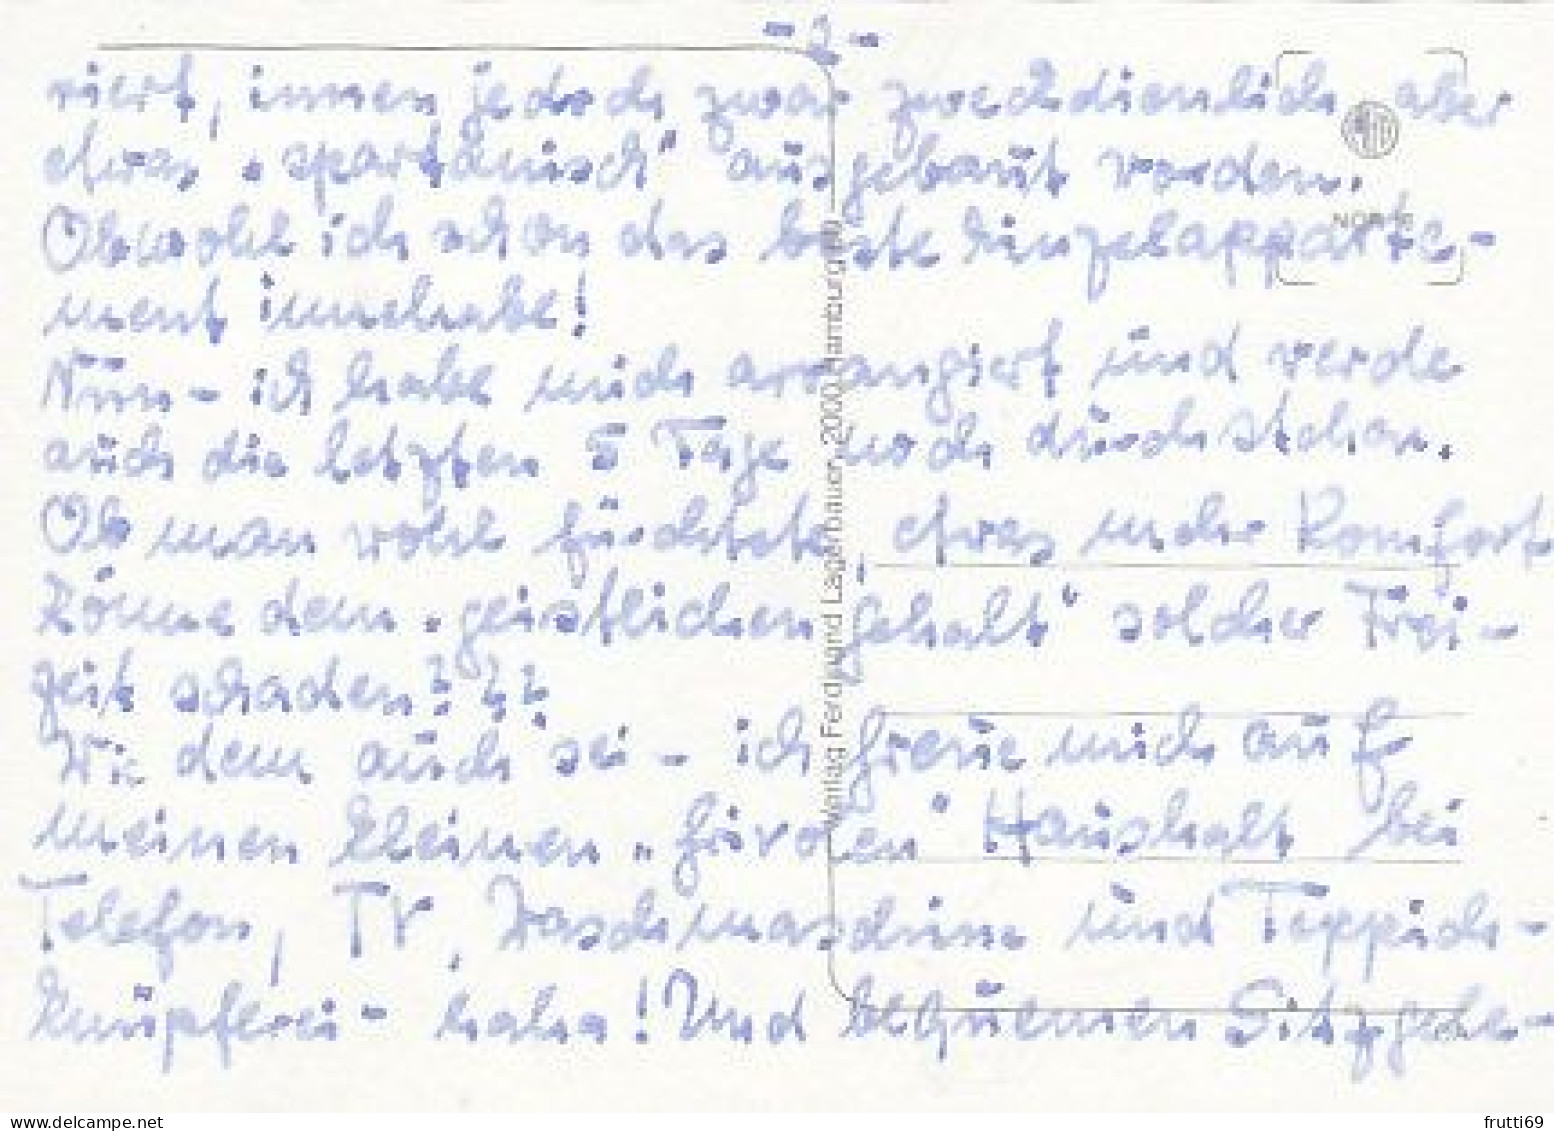 - 2 -
riert, innen jedoch zwar zweckdienlich, aber
etwas „spartanisch" ausgebaut worden.
Obwohl ich schon das beste Einzelapparte-
ment innehabe!
Nun - ich habe mich arrangiert und werde
auch die letzten 5 Tage noch durchstehen.
Ob man wohl fürchtete, etwas mehr Komfort
könne dem „geistlichen Gehalt" solcher Frei-
zeit schaden???
Wie dem auch sei - ich freue mich auf
meinen kleinen „frivolen" Haushalt bei
Telefon, TV, Waschmaschine und Teppich-
knüpferei - haha! Und bequemen Sitzgele-
Verlag Ferdinand Lagerbauer, 2000 Hamburg
frutti69